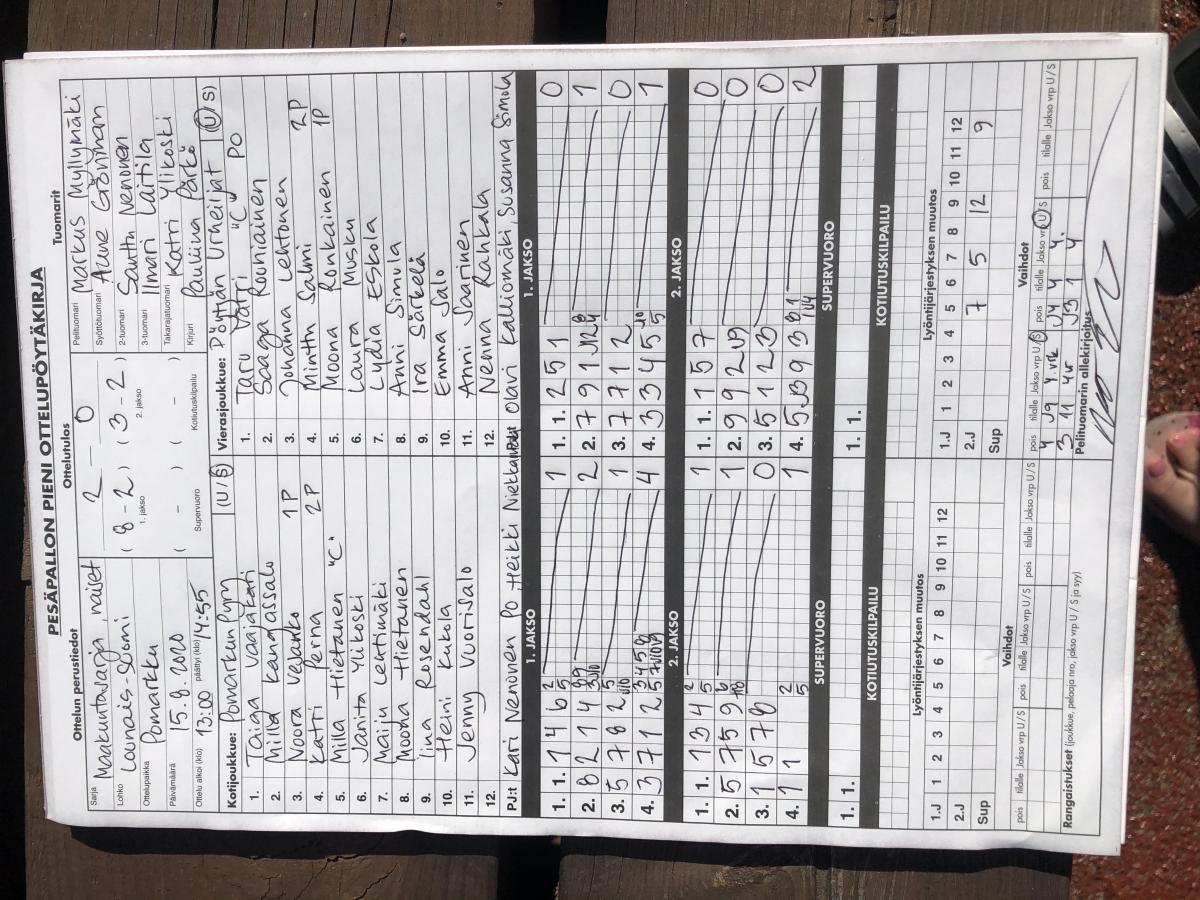 PESÄPALLON PIENI OTTELUPÖYTÄKIRJA
Ottelun perustiedot Ottelutulos Tuomarit
Sarja Maakuntasarja, naiset 2 – 0 Pelituomari Markus Myllymäki
Lohko Lounais-Suomi ( 8 – 2 ) ( 3 – 2 ) Syöttötuomari
1. jakso 2. jakso
Ottelupaikka Pomarkku 2-tuomari Santtu Nenonen
3-tuomari Ilmari Laitila
Päivämäärä 15.8.2020 ( – ) ( – ) Takarajatuomari Katri Ylikoski
Ottelu alkoi (klo) 13:00 päättyi (klo) 14:55 Supervuoro Kotiutuskilpailu Kirjuri Pauliina Pärkö
Kotijoukkue: Pomarkun Pyry (U/S) Vierasjoukkue: Pöytyän Urheilijat (U/S)
1. Taiga Vaajakari 1. Taru Vatri "C" PO
2. Milla Kangassalo 2. Saaga Rouhiainen
3. Noora Vejanko 1P 3. Johanna Lehtonen
4. Katri Perna 2P 4. Minttu Salmi 2P
5. Milla Hietanen "C" 5. Moona Ronkainen 1P
6. Janita Ylikoski 6. Laura Musku
7. Maiju Lehtimäki 7. Lydia Eskola
8. Moona Hietanen 8. Anni Simula
9. Iina Rosendahl 9. Ira Särkelä
10. Heini Kukola 10. Emma Salo
11. Jenny Vuorisalo 11. Anni Saarinen
12. 12. Nenna Rahkala
PJ:t Kari Nenonen PO, Heikki Olavi Kalliomäki, Susanna Simola
1. JAKSO 1. JAKSO
1. 1. 1 4 6 5 2 1 1. 1. 2 5 1 0
2. 8 2 1 4 2 2. 7 9 1 1
3. 5 7 8 2 1 3. 7 7 1 2 0
4. 3 7 1 2 5 4 4. 3 3 4 5 5 1
2. JAKSO 2. JAKSO
1. 1. 1 3 4 5 2 1 1. 1. 1 5 7 0
2. 5 7 5 9 6 1 2. 9 9 2 0
3. 1 5 7 8 0 3. 5 1 2 3 0
4. 1 1 5 2 1 4. 5 9 3 2
SUPERVUORO SUPERVUORO
1. 1. 1. 1.
KOTIUTUSKILPAILU KOTIUTUSKILPAILU
Lyöntijärjestyksen muutos Lyöntijärjestyksen muutos
1.J 1 2 3 4 5 6 7 8 9 10 11 12 1.J 1 2 3 4 5 6 7 8 9 10 11 12
2.J 2.J 7 5 12 9
Sup Sup
Vaihdot Vaihdot
pois tilalle Jakso vrp U/S pois tilalle Jakso vrp U/S pois tilalle Jakso vrp U/S pois tilalle Jakso vrp U/S pois tilalle Jakso vrp U/S pois tilalle Jakso vrp U/S
4 J9 4. J4 4 4.
3 11 J3 1 4
Rangaistukset (joukkue, pelaaja nro, jakso vrp U / S ja syy) Pelituomarin allekirjoitus